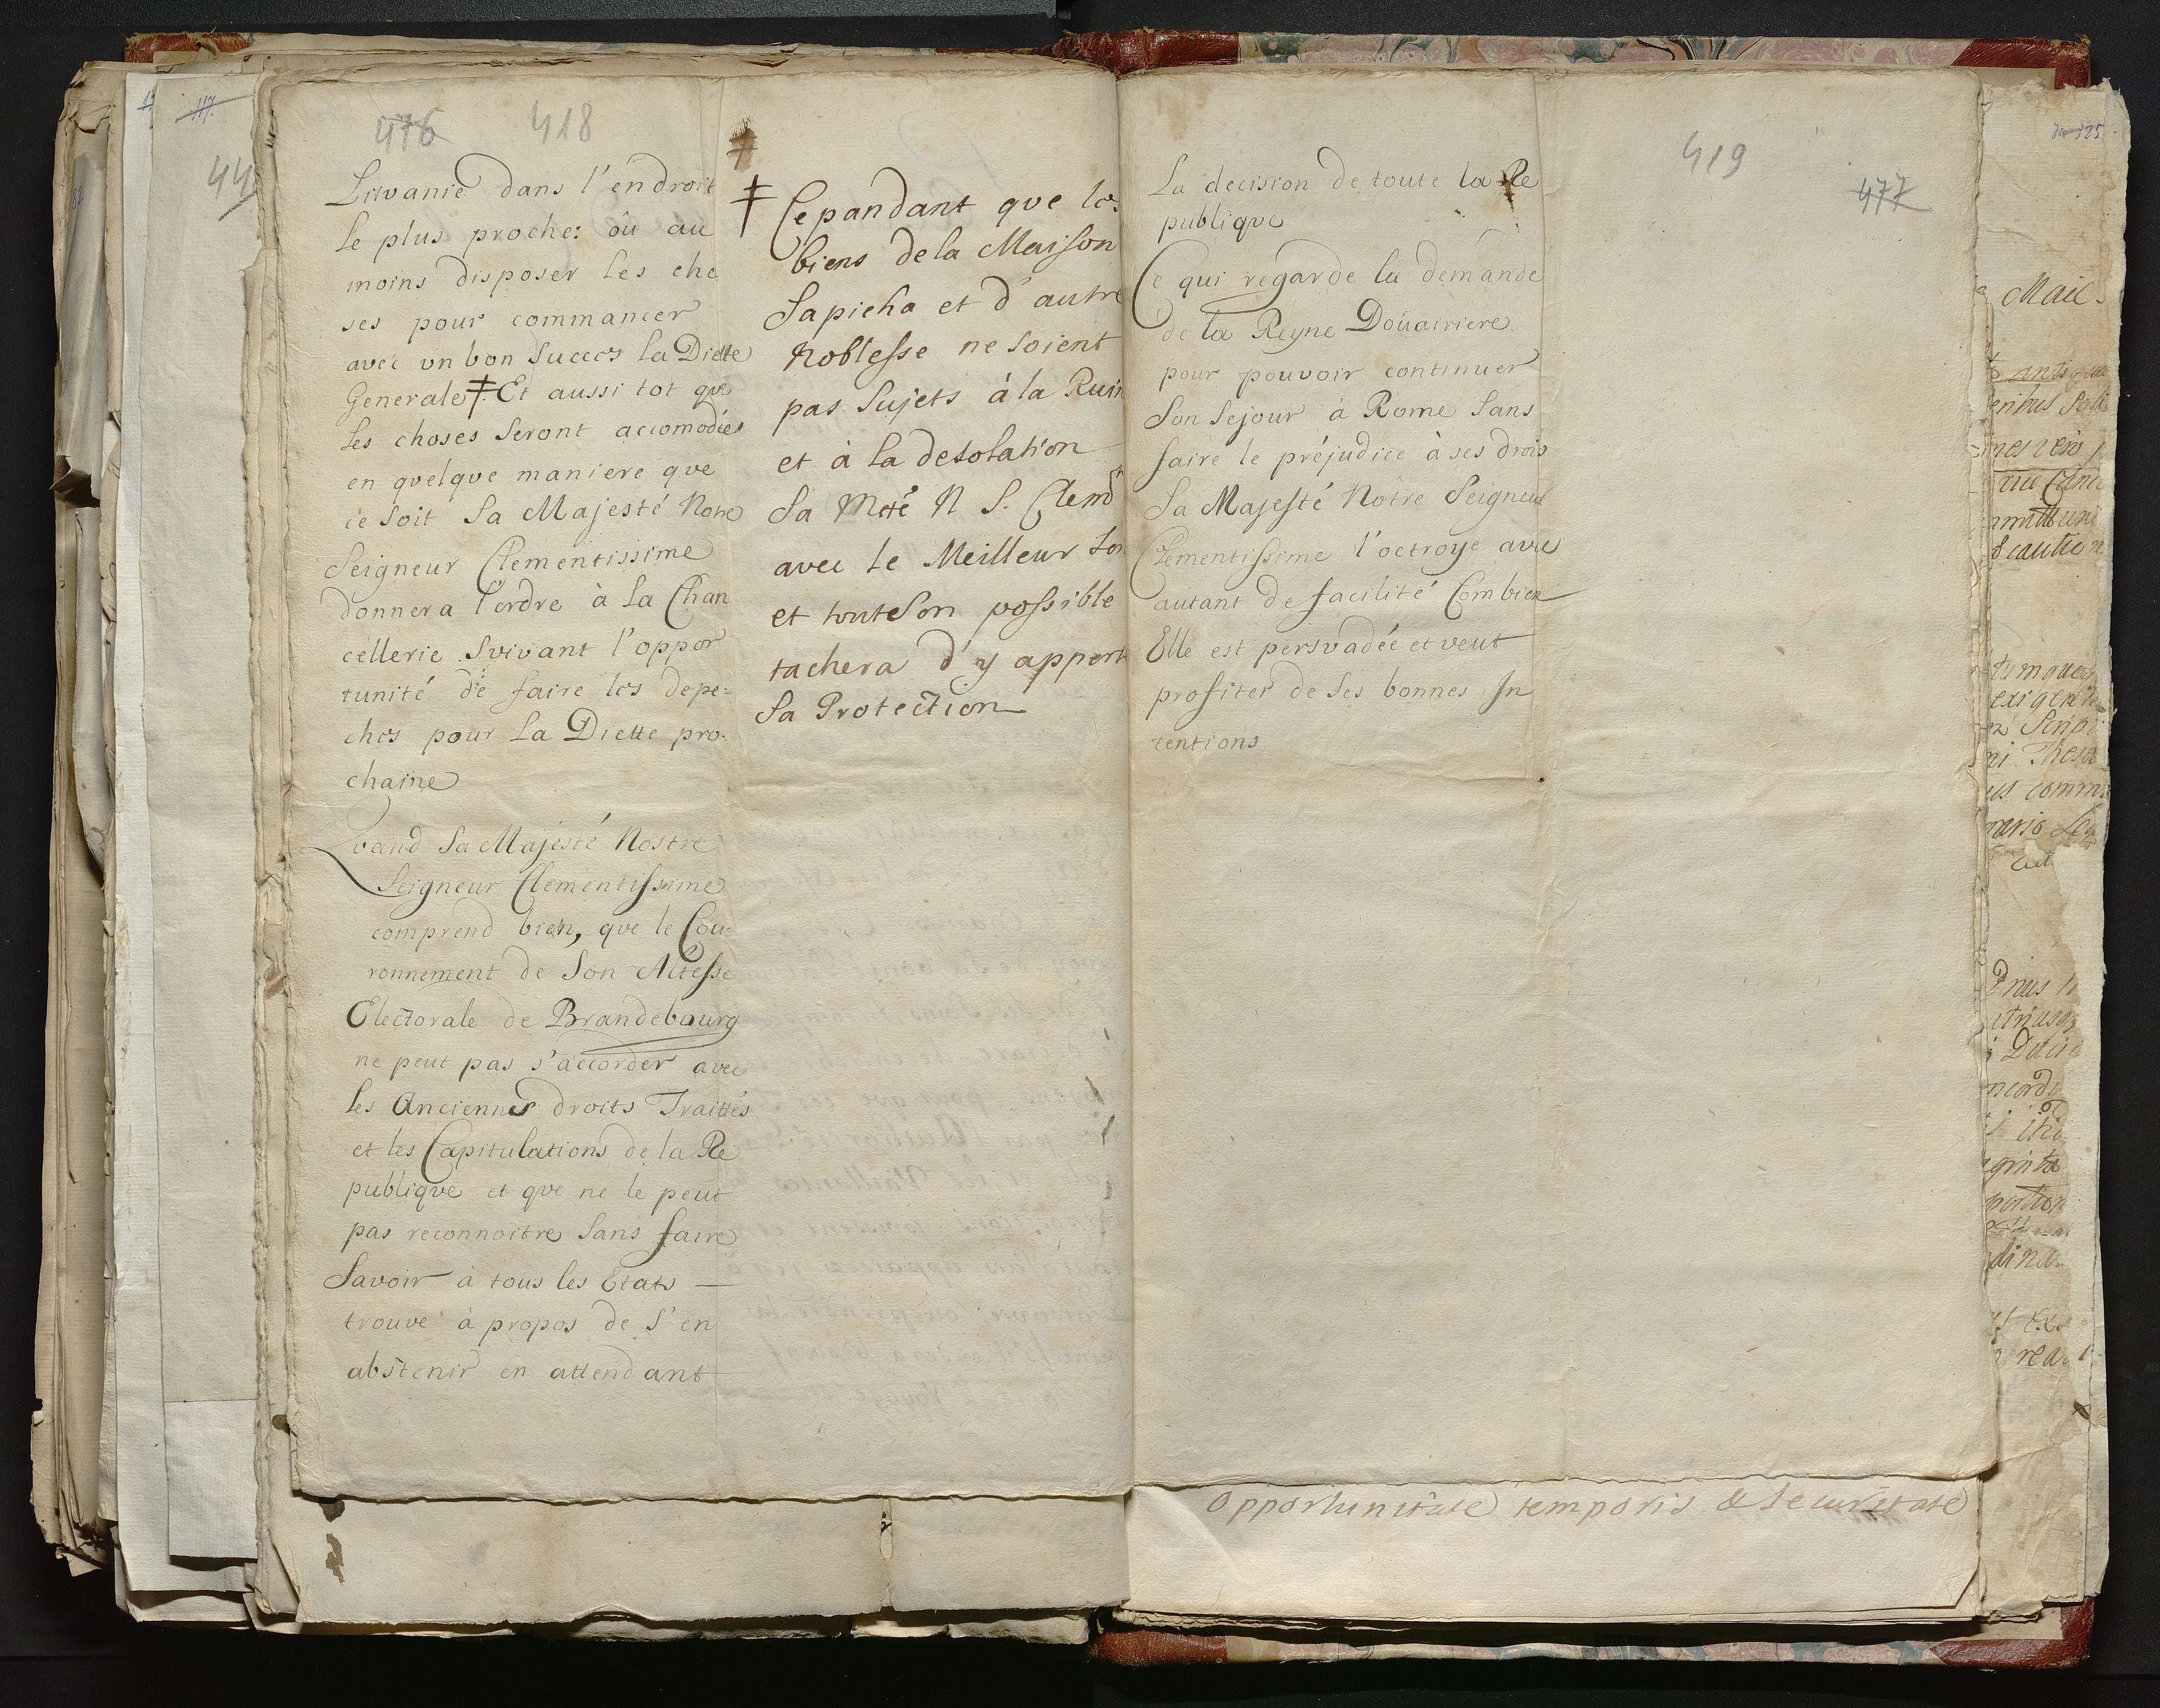 476 418
Litvanie dans l'endroit
le plus proche: oû au
moins disposer les cho
ses pour commancer
avec un bon succes la Diette
Generale ‡ Et aussi tot que
les choses seront accomodées
en quelque maniere que
ce soit Sa Majesté Notre
Seigneur Clementissime
donnera l'ordre à la Chan
cellerie suivant l'oppor
tunité de faire les depe=
ches pour la Diette pro-
chaine
Quand Sa Majésté Nostre
Seigneur Clementissime
comprend bien, que le Cou-
ronnement de Son Altesse
Electorale de Brandebourg
ne peut pas s'accorder avec
les Anciennes droits Traittés
et les Capitulations de la Re
publique et que ne le peut
pas reconnoitre sans faire
Savoir à tous les Etats —
trouve à propos de s'en
abstenir en attendant
‡ Cepandant que les
biens de la Maison
Sapieha et d'autre
Noblesse ne soient
pas sujets à la Ruin
et à la desolation
Sa Mté N S. Clem
avec le Meilleur
et tout son possible
tachera d'y apport
Sa Protection
419 477
La decision de toute la Re
publique
Ce qui regarde la demande
de la Reyne Doüairiere
pour pouvoir continuer
Son Sejour à Rome sans
faire le préjudice à ses drois
Sa Majesté Nôtre Seigneur
Clementissime l'octroye avec
autant de facilité Combien
Elle est persvadée et veut
profiter de ses bonnes In
tentions
opportunitate temporis & securitate